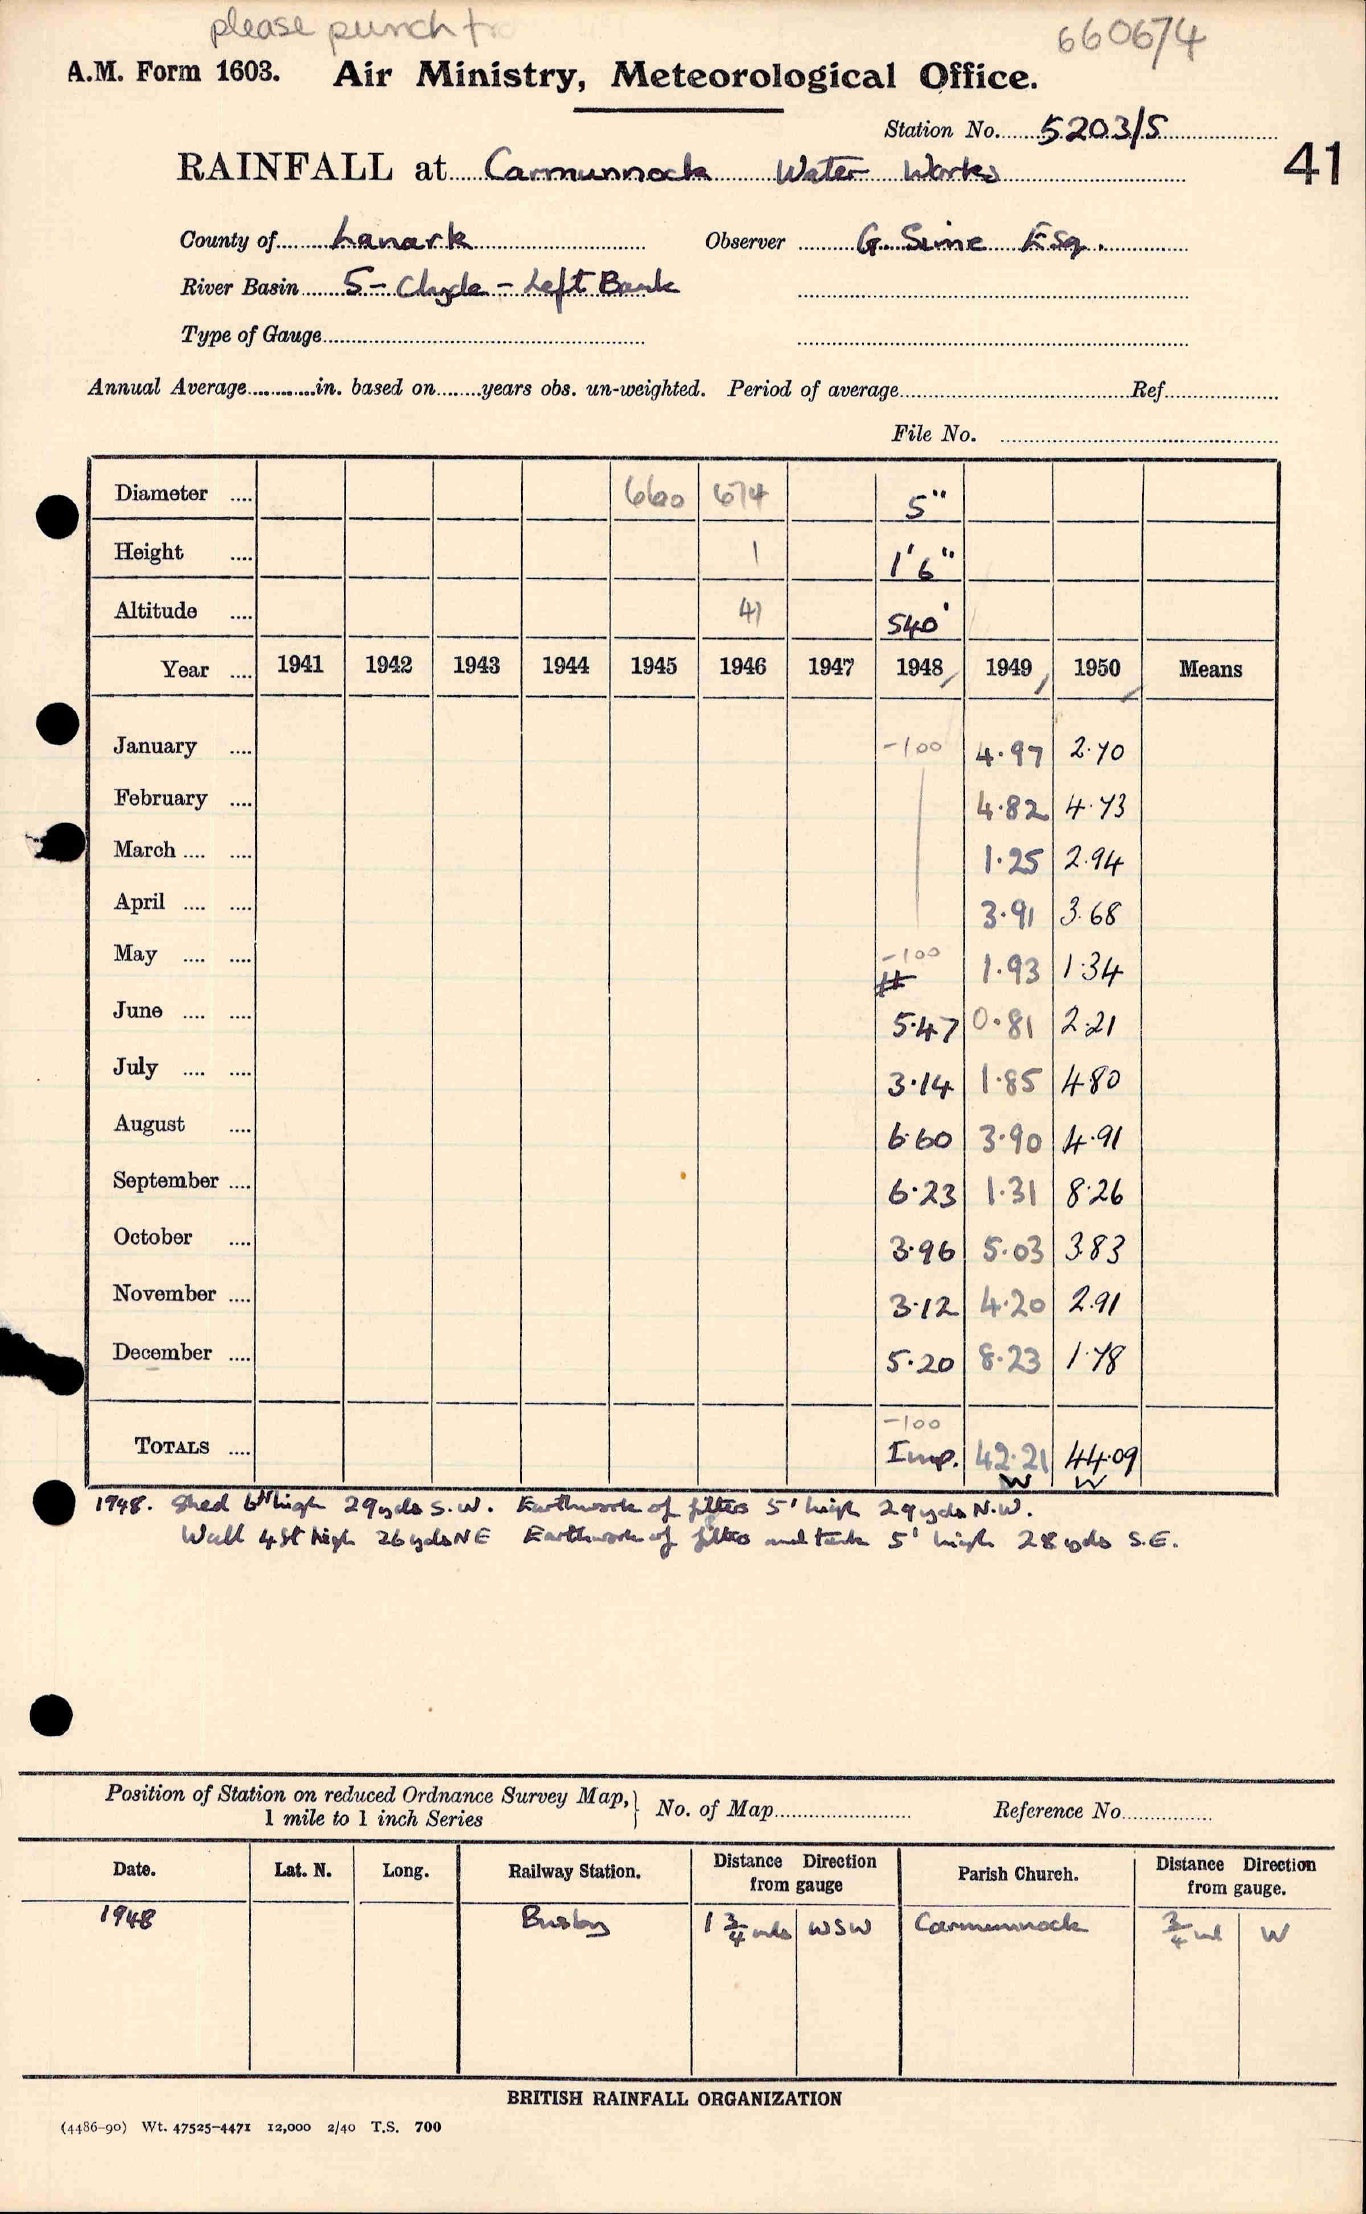 please punch
660674
A.M. Form 1603. Air Ministry, Meteorological Office.
Station No. 5203/5
41
RAINFALL at Carmunnock Water Works
County of Lanark Observer G. Sime Esq.
River Basin 5 - Clyde - Left Bank
Type of Gauge
Annual Average in. based on years obs. un-weighted. Period of average Ref
File No.
Diameter .... 660 674 5"
Height .... 1 1'6"
Altitude .... 41 540'
Year .... 1941 1942 1943 1944 1945 1946 1947 1948 1949 1950 Means
January .... -100 4.97 2.70
February .... 4.82 4.73
March .... .... 1.25 2.94
April .... .... 3.91 3.68
May .... .... -100 # 1.93 1.34
June .... .... 5.47 0.81 2.21
July .... .... 3.14 1.85 4.80
August .... 6.60 3.90 4.91
September .... 6.23 1.31 8.26
October .... 3.96 5.03 3.83
November .... 3.12 4.20 2.91
December .... 5.20 8.23 1.78
-100
TOTALS .... Imp. 42.21 44.09
W W
1948. Shed 6ft high 29yds S.W. Earthwork of filters 5' high 29yds N.W.
Wall 4ft high 26yds NE Earthwork of filters and tank 5' high 28yds S.E.
Position of Station on reduced Ordnance Survey Map, } No. of Map Reference No.
1 mile to 1 inch Series
Date. Lat. N. Long. Railway Station. Distance Direction from gauge Parish Church. Distance Direction from gauge.
1948 Busby 1 3/4 mls WSW Carmunnock 3/4 ml W
BRITISH RAINFALL ORGANIZATION
(4486-90) Wt. 47525-4471 12,000 2/40 T.S. 700